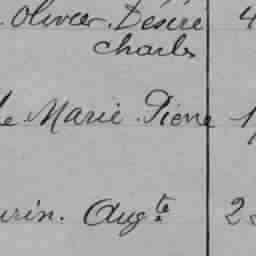 Olivier. Désiré 4
Charles
Marie Pierre
urin. Aug.te 2